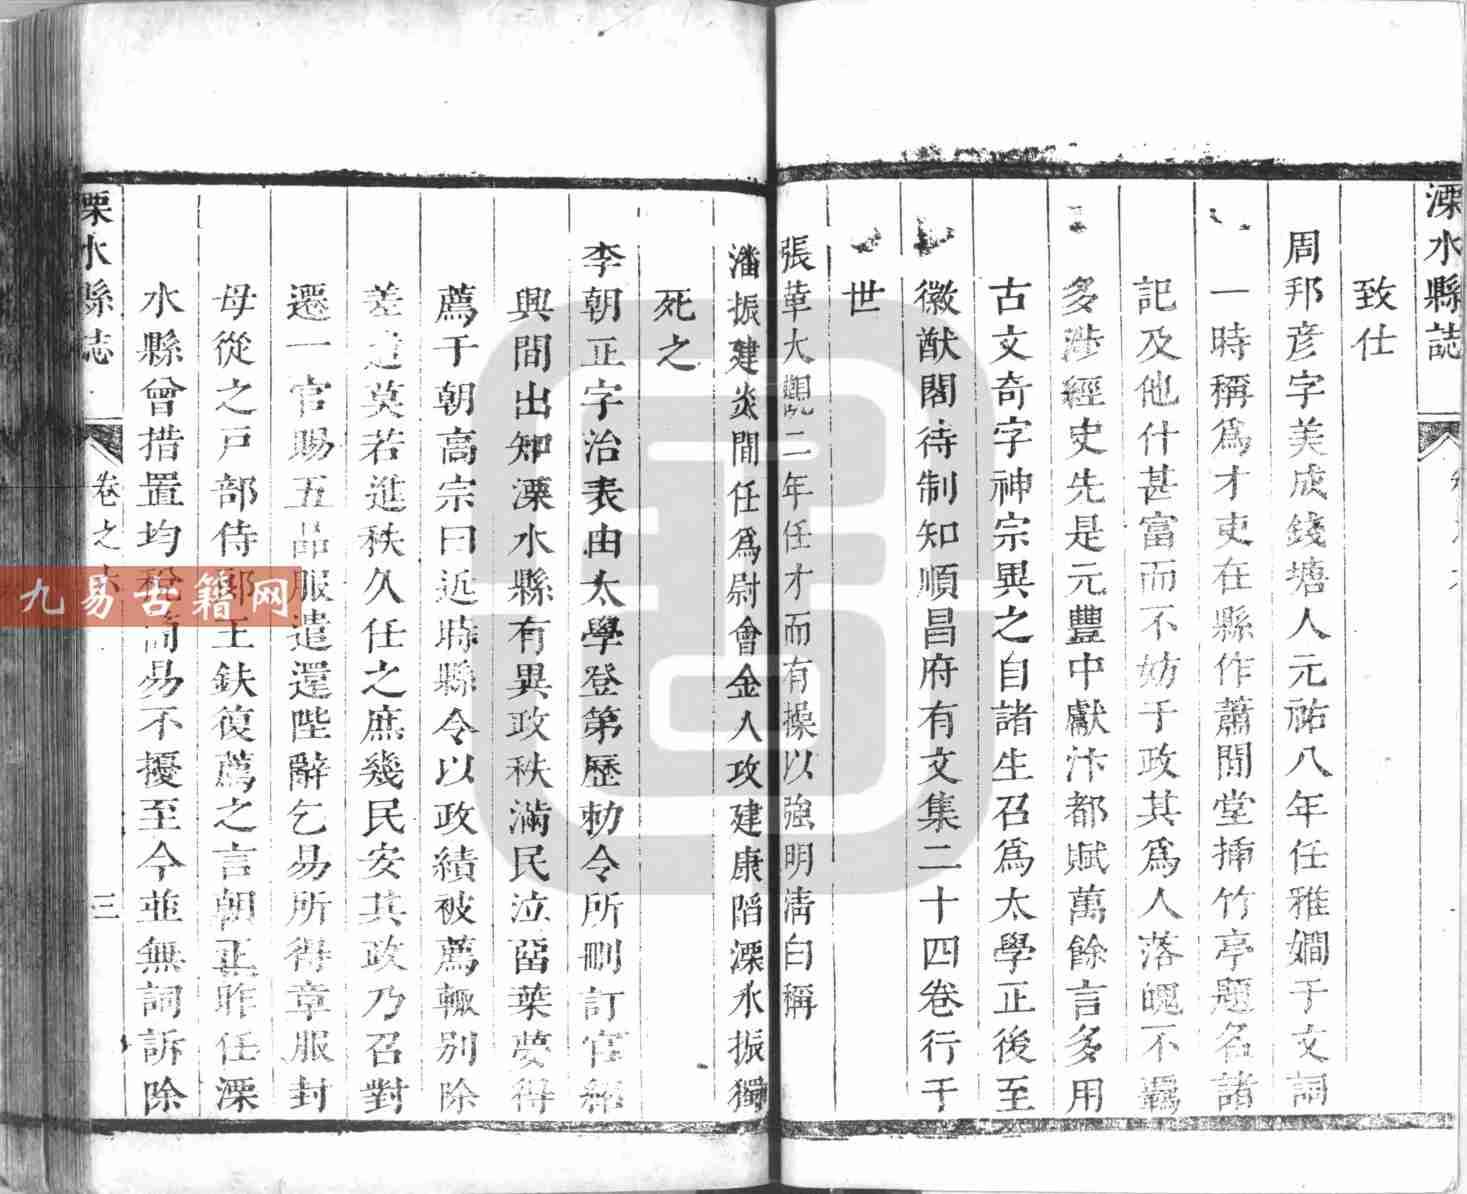 溧水縣誌
致仕
周邦彦字美成錢塘人元祐八年任雅嫺于文詞
一時稱為才吏在縣作蕭閒堂揷竹亭題名諸
記及他什甚富而不妨于政其為人落魄不羈
多涉經史先是元豐中獻汴都賦萬餘言多用
古文奇字神宗異之自諸生召為太學正後至
徽猷閣待制知順昌府有文集二十四卷行于
世
張革大觀二年任才而有操以強明淸白稱
潘振建炎間任為尉會金人攻建康陷溧水振獨
死之
李朝正字治表由太學登第歷勅令所刪訂官紹
興間出知溧水縣有異政秩滿民泣畱葉夢得
薦于朝高宗曰近時縣令以政績被薦輙別除
差遣莫若進秩久任之庶幾民安其政乃召對
遷一官賜五品服遣還陛辭乞易所得章服封
母從之戸部侍郎王鈇復薦之言朝正昨任溧
水縣曾措置均稅簡易不擾至今並無詞訴除
溧水縣誌
卷之六
三
九易古籍网